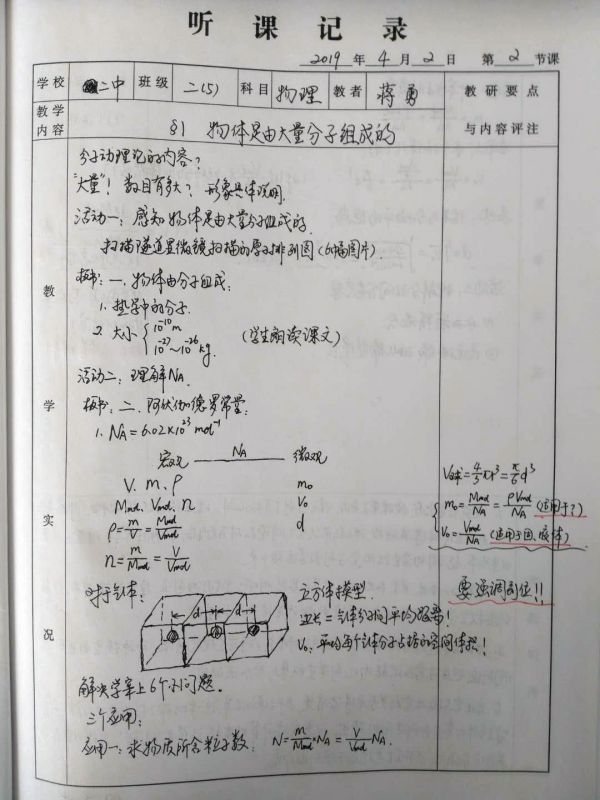 听课记录
2019 年 4 月 2 日 第 2 节课
学校 二中 班级 二(5) 科目 物理 教者 蒋勇 教研要点
与内容评注
教学
内容 §1 物体是由大量分子组成的
教学实况
分子动理论的内容?
"大量"! 数目有多大? 形象具体说明.
活动一: 感知物体是由大量分子组成的.
扫描隧道显微镜扫描的原子排列图(6幅图片)
板书: 一. 物体由分子组成:
1. 热学中的分子.
2. 大小 { 10⁻¹⁰m
10⁻²⁷~10⁻²⁶ kg. (学生朗读课文)
活动二: 理解NA.
板书: 二. 阿伏伽德罗常量:
1. NA=6.02×10²³ mol⁻¹
宏观 —— NA —— 微观
V. m. ρ m₀
Mmol. Vmol. n V₀
ρ=m/V=Mmol/Vmol d
n=m/Mmol=V/Vmol
对于气体: 立方体模型.
d d 边长=气体分子间平均距离!
V₀: 平均每个气体分子占据的空间体积!
解决学案上6个小问题.
三个应用:
应用一: 求物质所含粒子数: N=m/Mmol×NA=V/Vmol NA.
V球=4/3πr³=π/6d³
m₀=Mmol/NA=ρVmol/NA (适用于?)
V₀=Vmol/NA (适用于固、液体)
要强调到位!!